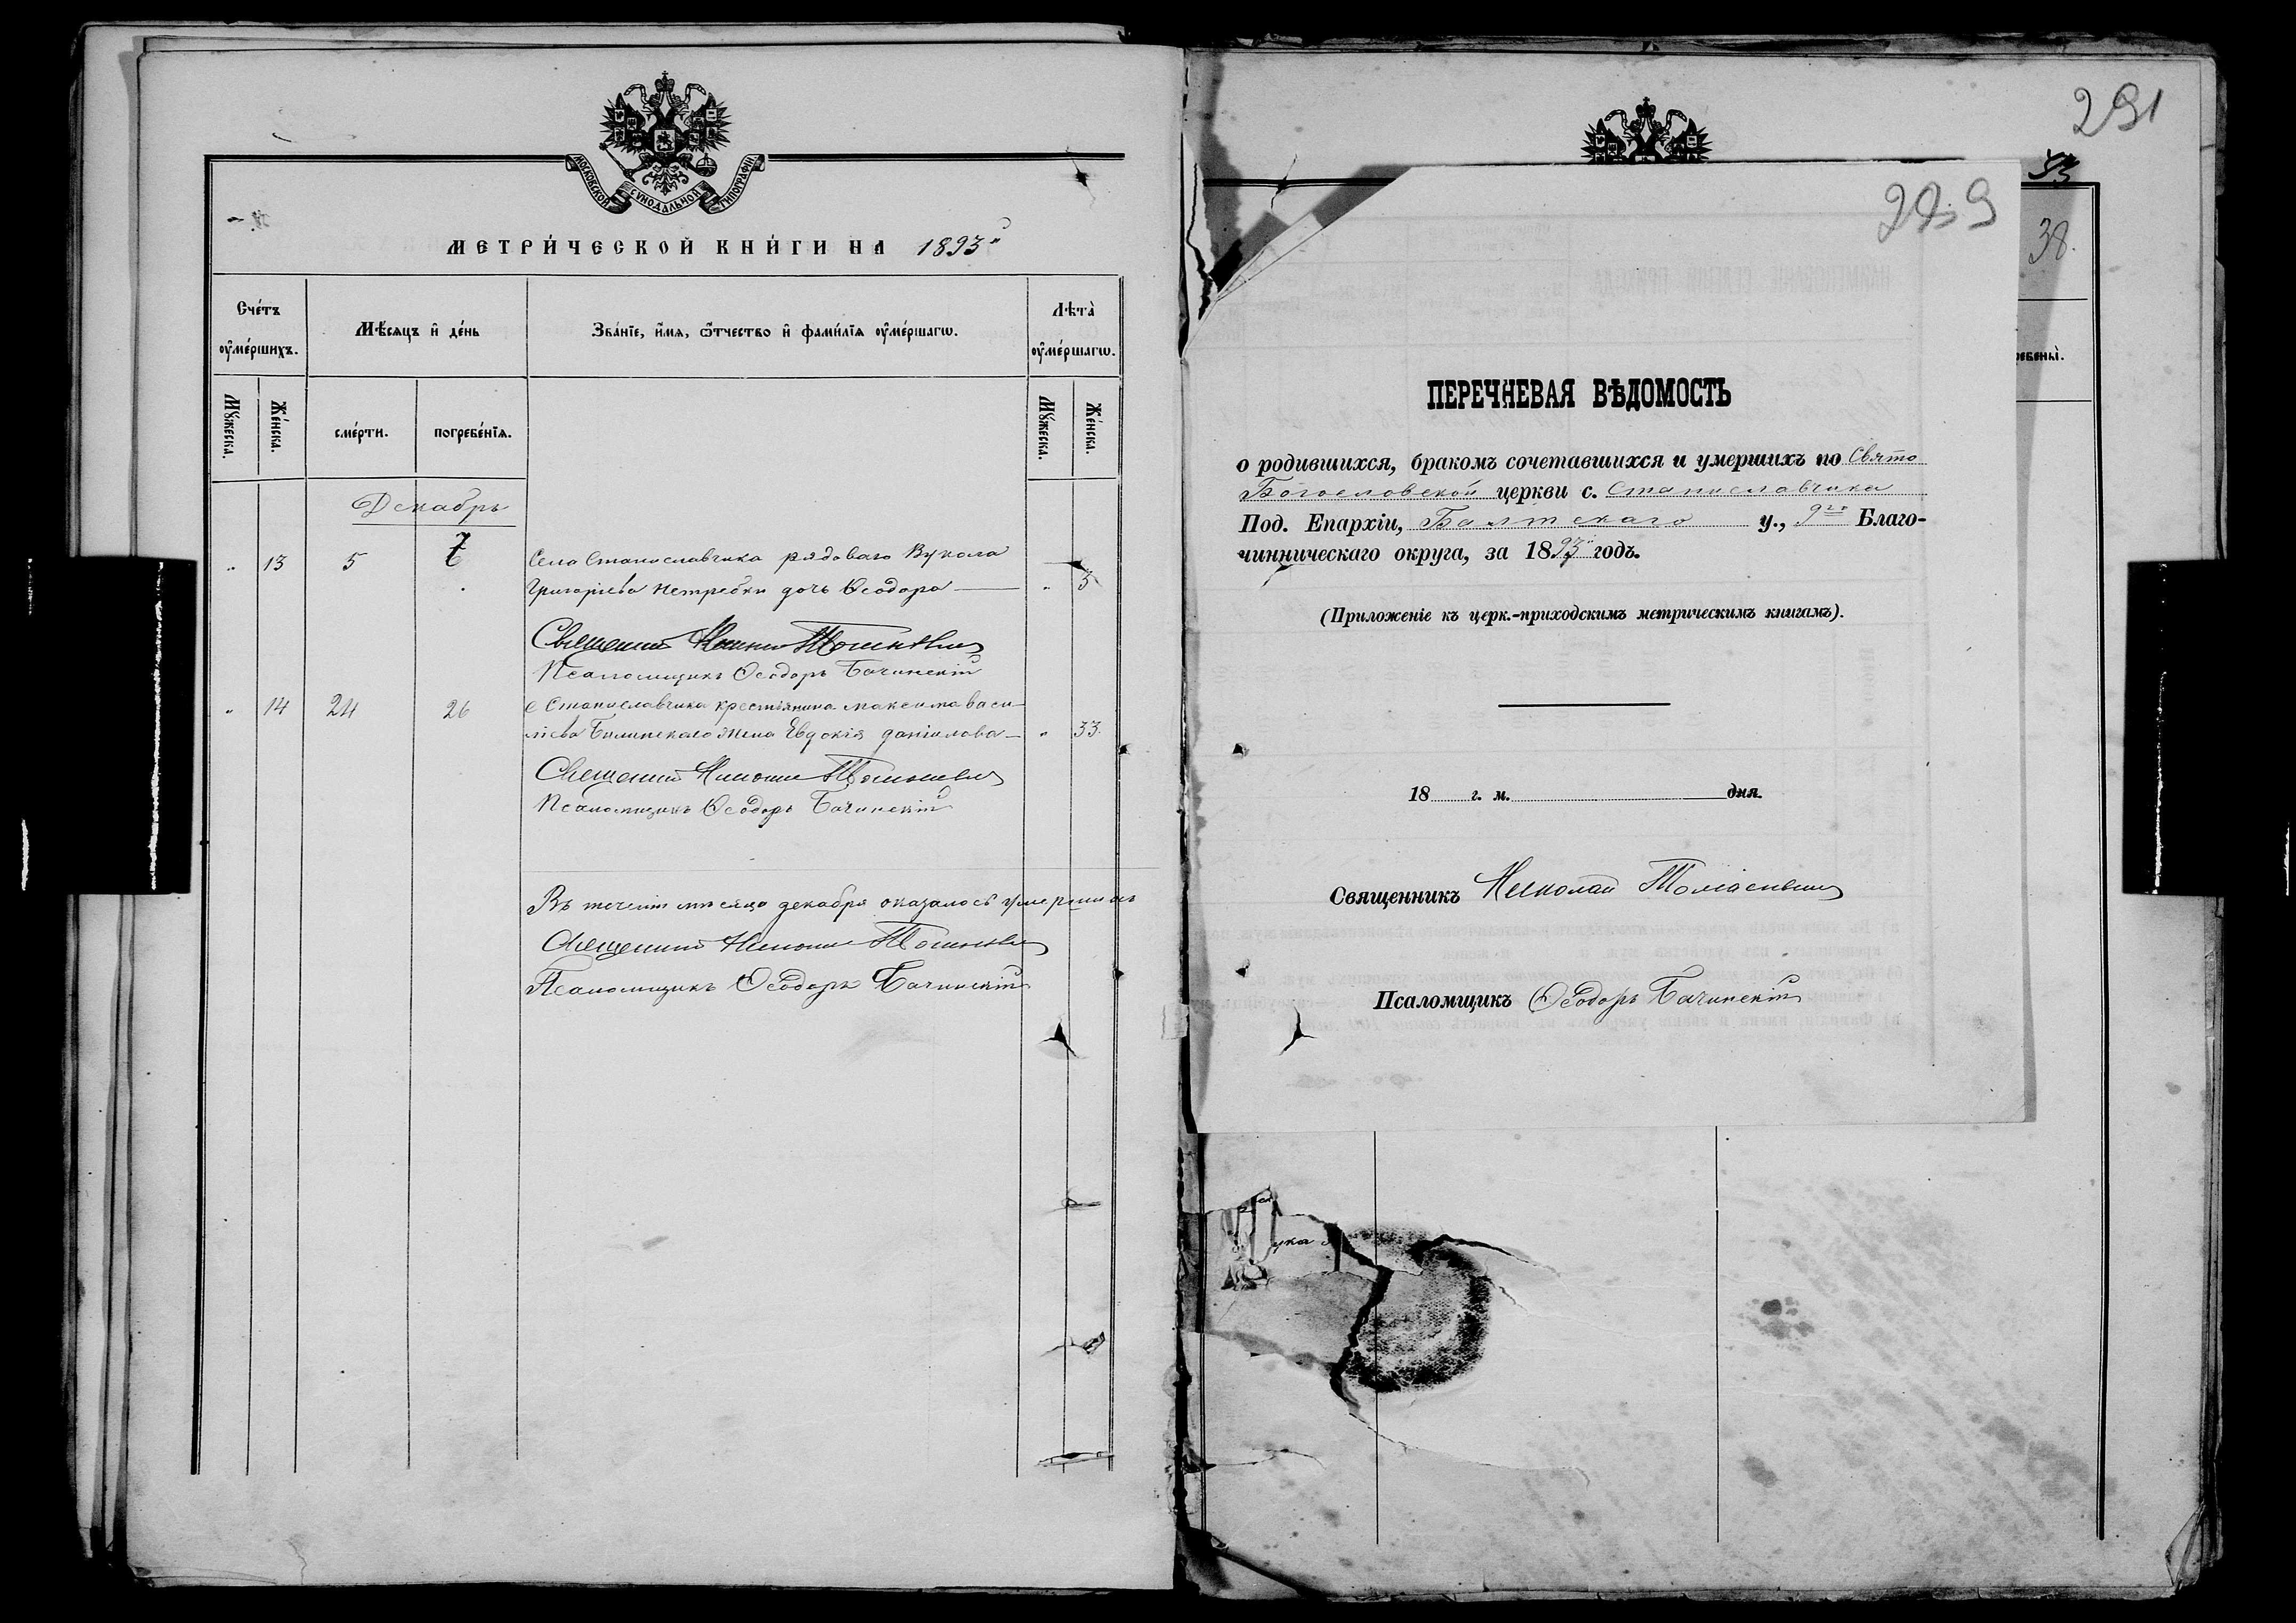 МОСКОВСКОЙ СѴНОДАЛЬНОЙ ТИПОГРАФІИ
МЕТРИ́ЧЕСКОЙ КНИ́ГИ НА 1893й
Сче́тъ оу҆ме́ршихъ.
Мѣ́сяцъ и҆ де́нь
Зва́нїе, и҆́мя, ѻ҆́тчество и҆ фами́лїя оу҆ме́ршагѡ.
Лѣта̀ оу҆ме́ршагѡ.
Мꙋ́жеска.
Же́нска.
сме́рти.
погребе́нїя.
Мꙋ́жеска.
Же́нска.
Декабрь
" 13 5 7 Села Станиславчика рядоваго Вукола
Григоріева Нетребки дочь Ѳеодора " 5
Священник Николай Томасевич
Псаломщикъ Ѳеодоръ Бачинскій
" 14 24 26 с Станиславчика крестянина Максима Васи-
ліева Билинскаго жена Евдокія Даніилова " 33.
Священник Николай Томасевич
Псаломщикъ Ѳеодоръ Бачинскій
Въ течении мѣсяца декабря оказалось умершихъ
Священник Николай Томасевич
Псаломщикъ Ѳеодоръ Бачинскій
291
38.
ребены̀.
ПЕРЕЧНЕВАЯ ВѢДОМОСТЬ
о родившихся, бракомъ сочетавшихся и умершихъ по Свято
Богословской церкви с. Станиславчика
Под. Епархіи, Балтскаго у., 9го Благо-
чинническаго округа, за 1893й годъ.
(Приложеніе къ церк.-приходскимъ метрическимъ книгамъ).
18 г. м. дня.
Священникъ Николай Томасевич
Псаломщикъ Ѳеодоръ Бачинскій